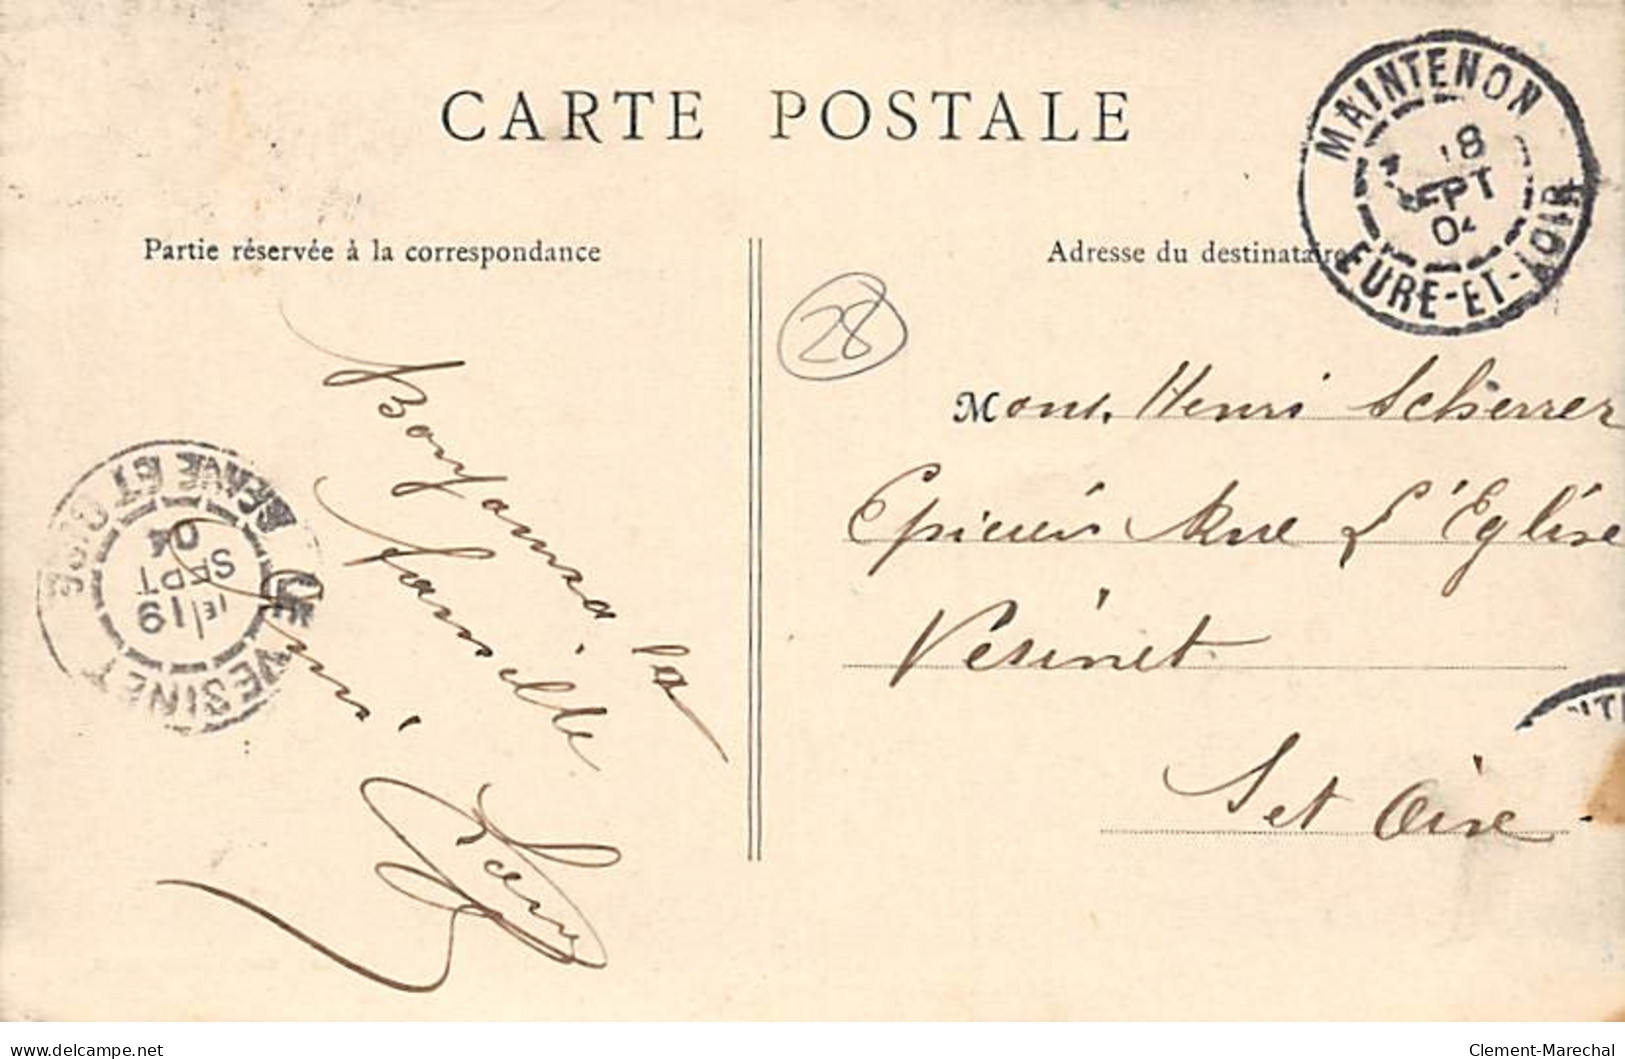 CARTE POSTALE
Partie réservée à la correspondance
Adresse du destinataire
MAINTENON
18
SEPT
04
EURE-ET-LOIR
28
Mons. Henri Scherrer
Epicier Rue L'Eglise
Vésinet
S et Oise
Bonjour à la
famille
Ami
LE VESINET
1E/19
SEPT
04
SEINE ET OISE
delcampe.net
Clement-Marechal